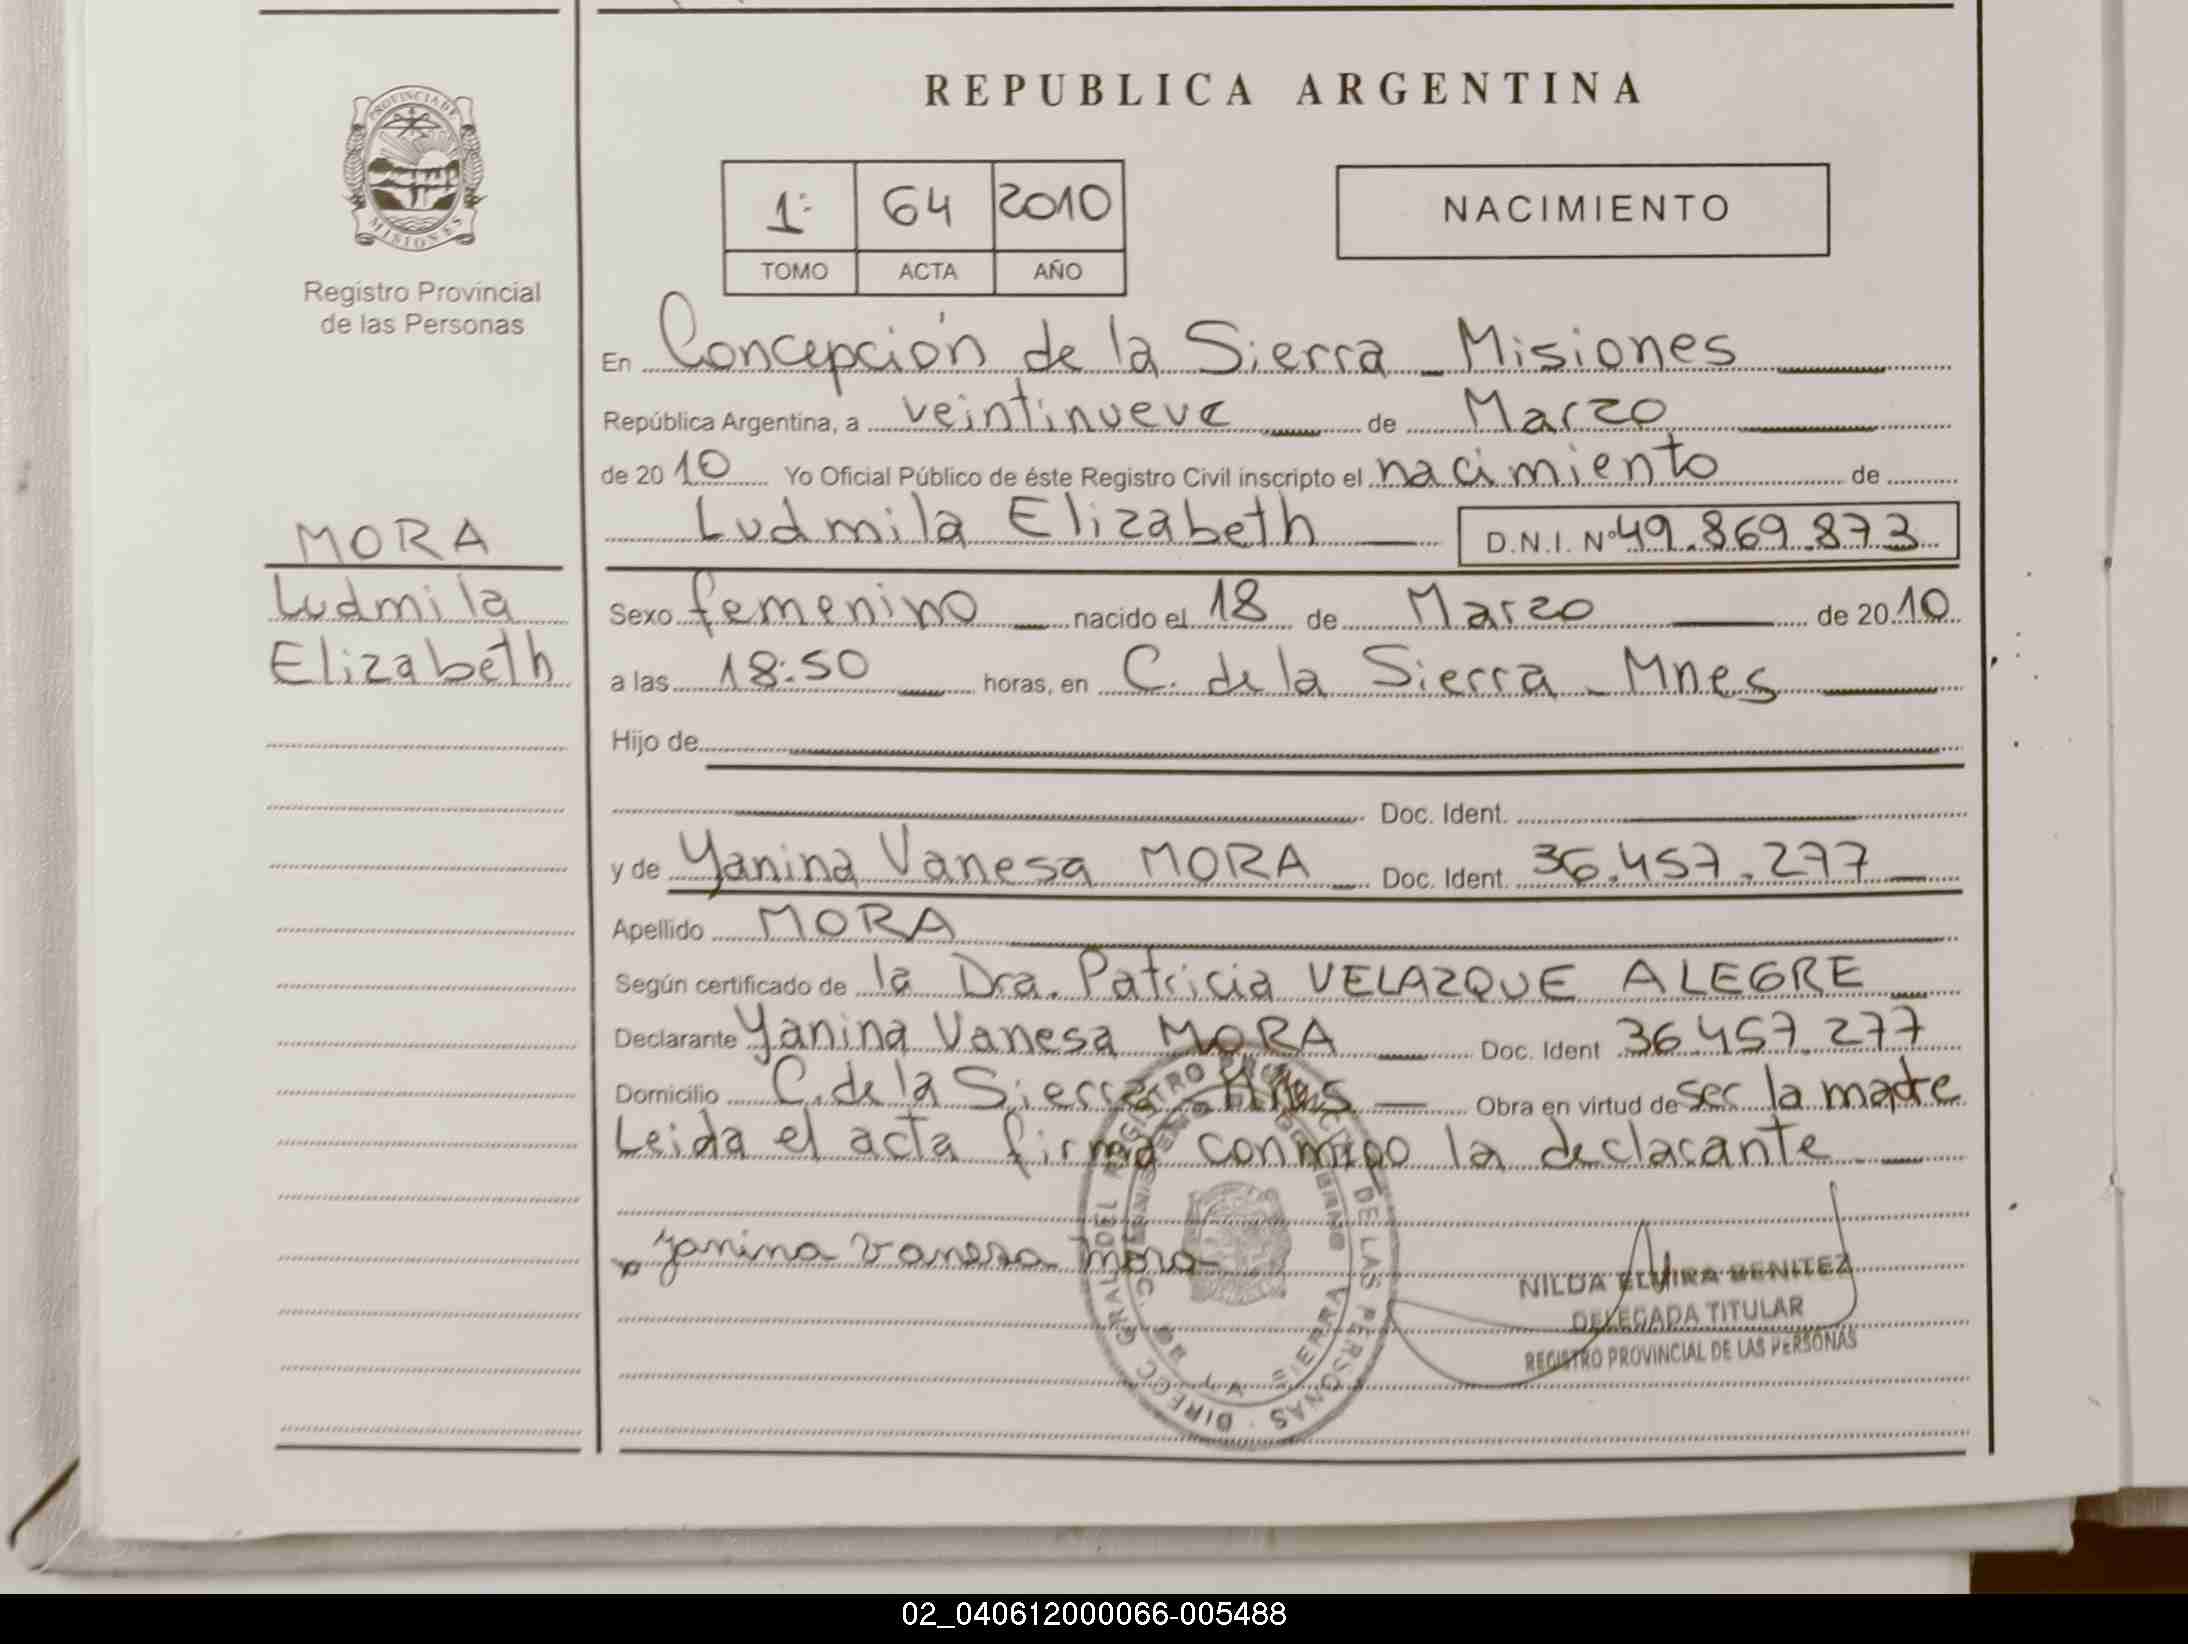 PROVINCIA DE
MISIONES
Registro Provincial
de las Personas
MORA
Ludmila
Elizabeth
REPUBLICA ARGENTINA
1º 64 2010
TOMO ACTA AÑO
NACIMIENTO
En Concepción de la Sierra - Misiones
República Argentina, a veintinueve de Marzo
de 2010 Yo Oficial Público de éste Registro Civil inscripto el nacimiento de
Ludmila Elizabeth D.N.I. Nº 49.869.873
Sexo femenino nacido el 18 de Marzo de 2010
a las 18:50 horas, en C. de la Sierra - Mnes
Hijo de
Doc. Ident.
y de Yanina Vanesa MORA Doc. Ident. 36.457.277
Apellido MORA
Según certificado de la Dra. Patricia VELAZQUE ALEGRE
Declarante Yanina Vanesa MORA Doc. Ident 36.457.277
Domicilio C. de la Sierra - Mnes Obra en virtud de ser la madre
Leida el acta firma conmigo la declarante
Yanina Vanesa Mora
NILDA ELVIRA BENITEZ
DELEGADA TITULAR
REGISTRO PROVINCIAL DE LAS PERSONAS
DIRECC GRAL DEL REGISTRO PROVINCIAL DE LAS PERSONAS
C. DE LA SIERRA
02_040612000066-005488